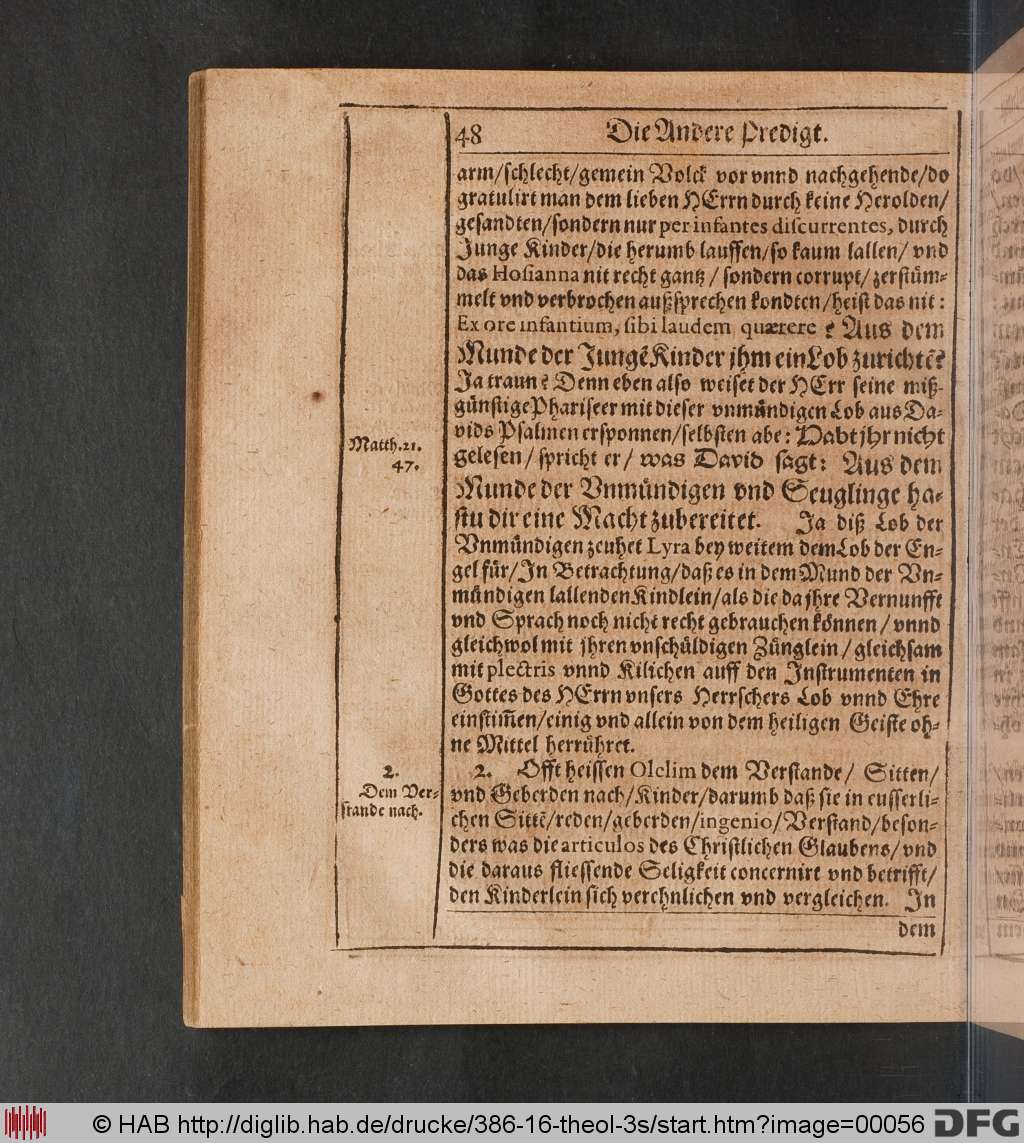 48 Die Andere Predigt.
arm/schlecht/gemein Volck vor vnnd nachgehende/do
gratulirt man dem lieben HErrn durch keine Herolden/
gesandten/sondern nur per infantes discurrentes, durch
Junge Kinder/die herumb lauffen/so kaum lallen/ vnd
das Hosianna nit recht gantz / sondern corrupt/ zerstüm-
melt vnd verbrochen außsprechen kondten/heist das nit:
Ex ore infantium, sibi laudem quærere ? Aus dem
Munde der Jungẽ Kinder jhm ein Lob zurichtẽ?
Ja traun? Denn eben also weiset der HErr seine miß-
günstige Phariseer mit dieser vnmündigen Lob aus Da-
vids Psalmen ersponnen/selbsten abe: Habt jhr nicht
gelesen/ spricht er/ was David sagt: Aus dem
Munde der Vnmündigen vnd Seuglinge ha-
stu dir eine Macht zubereitet. Ja diß Lob der
Vnmündigen zeuhet Lyra bey weitem dem Lob der En-
gel für/In Betrachtung/daß es in dem Mund der Vn-
mündigen lallenden Kindlein/als die da jhre Vernunfft
vnd Sprach noch nicht recht gebrauchen können/ vnnd
gleichwol mit jhren vnschüldigen Zünglein/ gleichsam
mit plectris vnnd Kilichen auff den Instrumenten in
Gottes des HErrn vnsers Herrschers Lob vnnd Ehre
einstim̃en/einig vnd allein von dem heiligen Geiste oh-
ne Mittel herrühret.
2. Offt heissen Olelim dem Verstande/ Sitten/
vnd Geberden nach/Kinder/darumb daß sie in eusserli-
chen Sittẽ/reden/geberden/ingenio/Verstand/beson-
ders was die articulos des Christlichen Glaubens/vnd
die daraus fliessende Seligkeit concernirt vnd betrifft/
den Kinderlein sich verehnlichen vnd vergleichen. In
dem
Matth.21.
47.
2.
Dem Ver-
stande nach.
© HAB http://diglib.hab.de/drucke/386-16-theol-3s/start.htm?image=00056
DFG